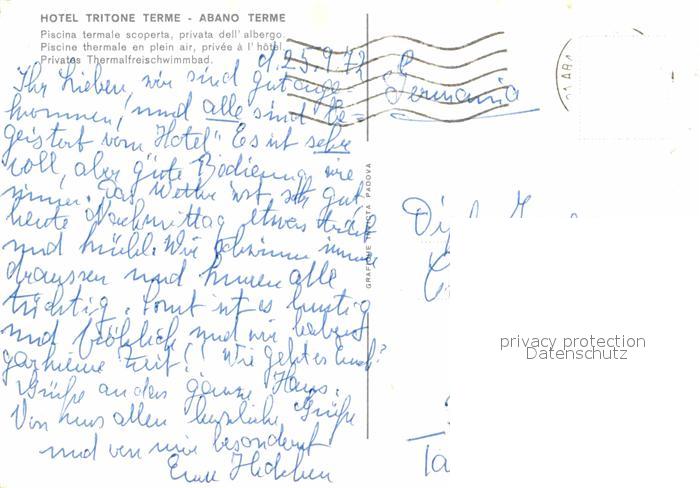 HOTEL TRITONE TERME - ABANO TERME
Piscina termale scoperta, privata dell'albergo.
Piscine thermale en plein air, privée à l'hôtel.
Privates Thermalfreischwimmbad.
d. 25.9.72
Ihr Lieben, wir sind gut ange-
kommen, und alle sind "be-
geistert vom Hotel" Es ist sehr
voll, aber gute Bedienung wie
immer. Das Wetter ist sehr gut,
heute Nachmittag etwas
und kühl. Wir schwimmen immer
draussen und können alle
tüchtig. Sonst ist es lustig
und fröhlich und wir haben
garkeine Zeit! Wie geht es Euch?
Grüße an das ganze Haus.
Von uns allen herzliche Grüße
und von mir besonders
Eure
Germania
GRAFICHE PADOVA
Ta
privacy protection
Datenschutz